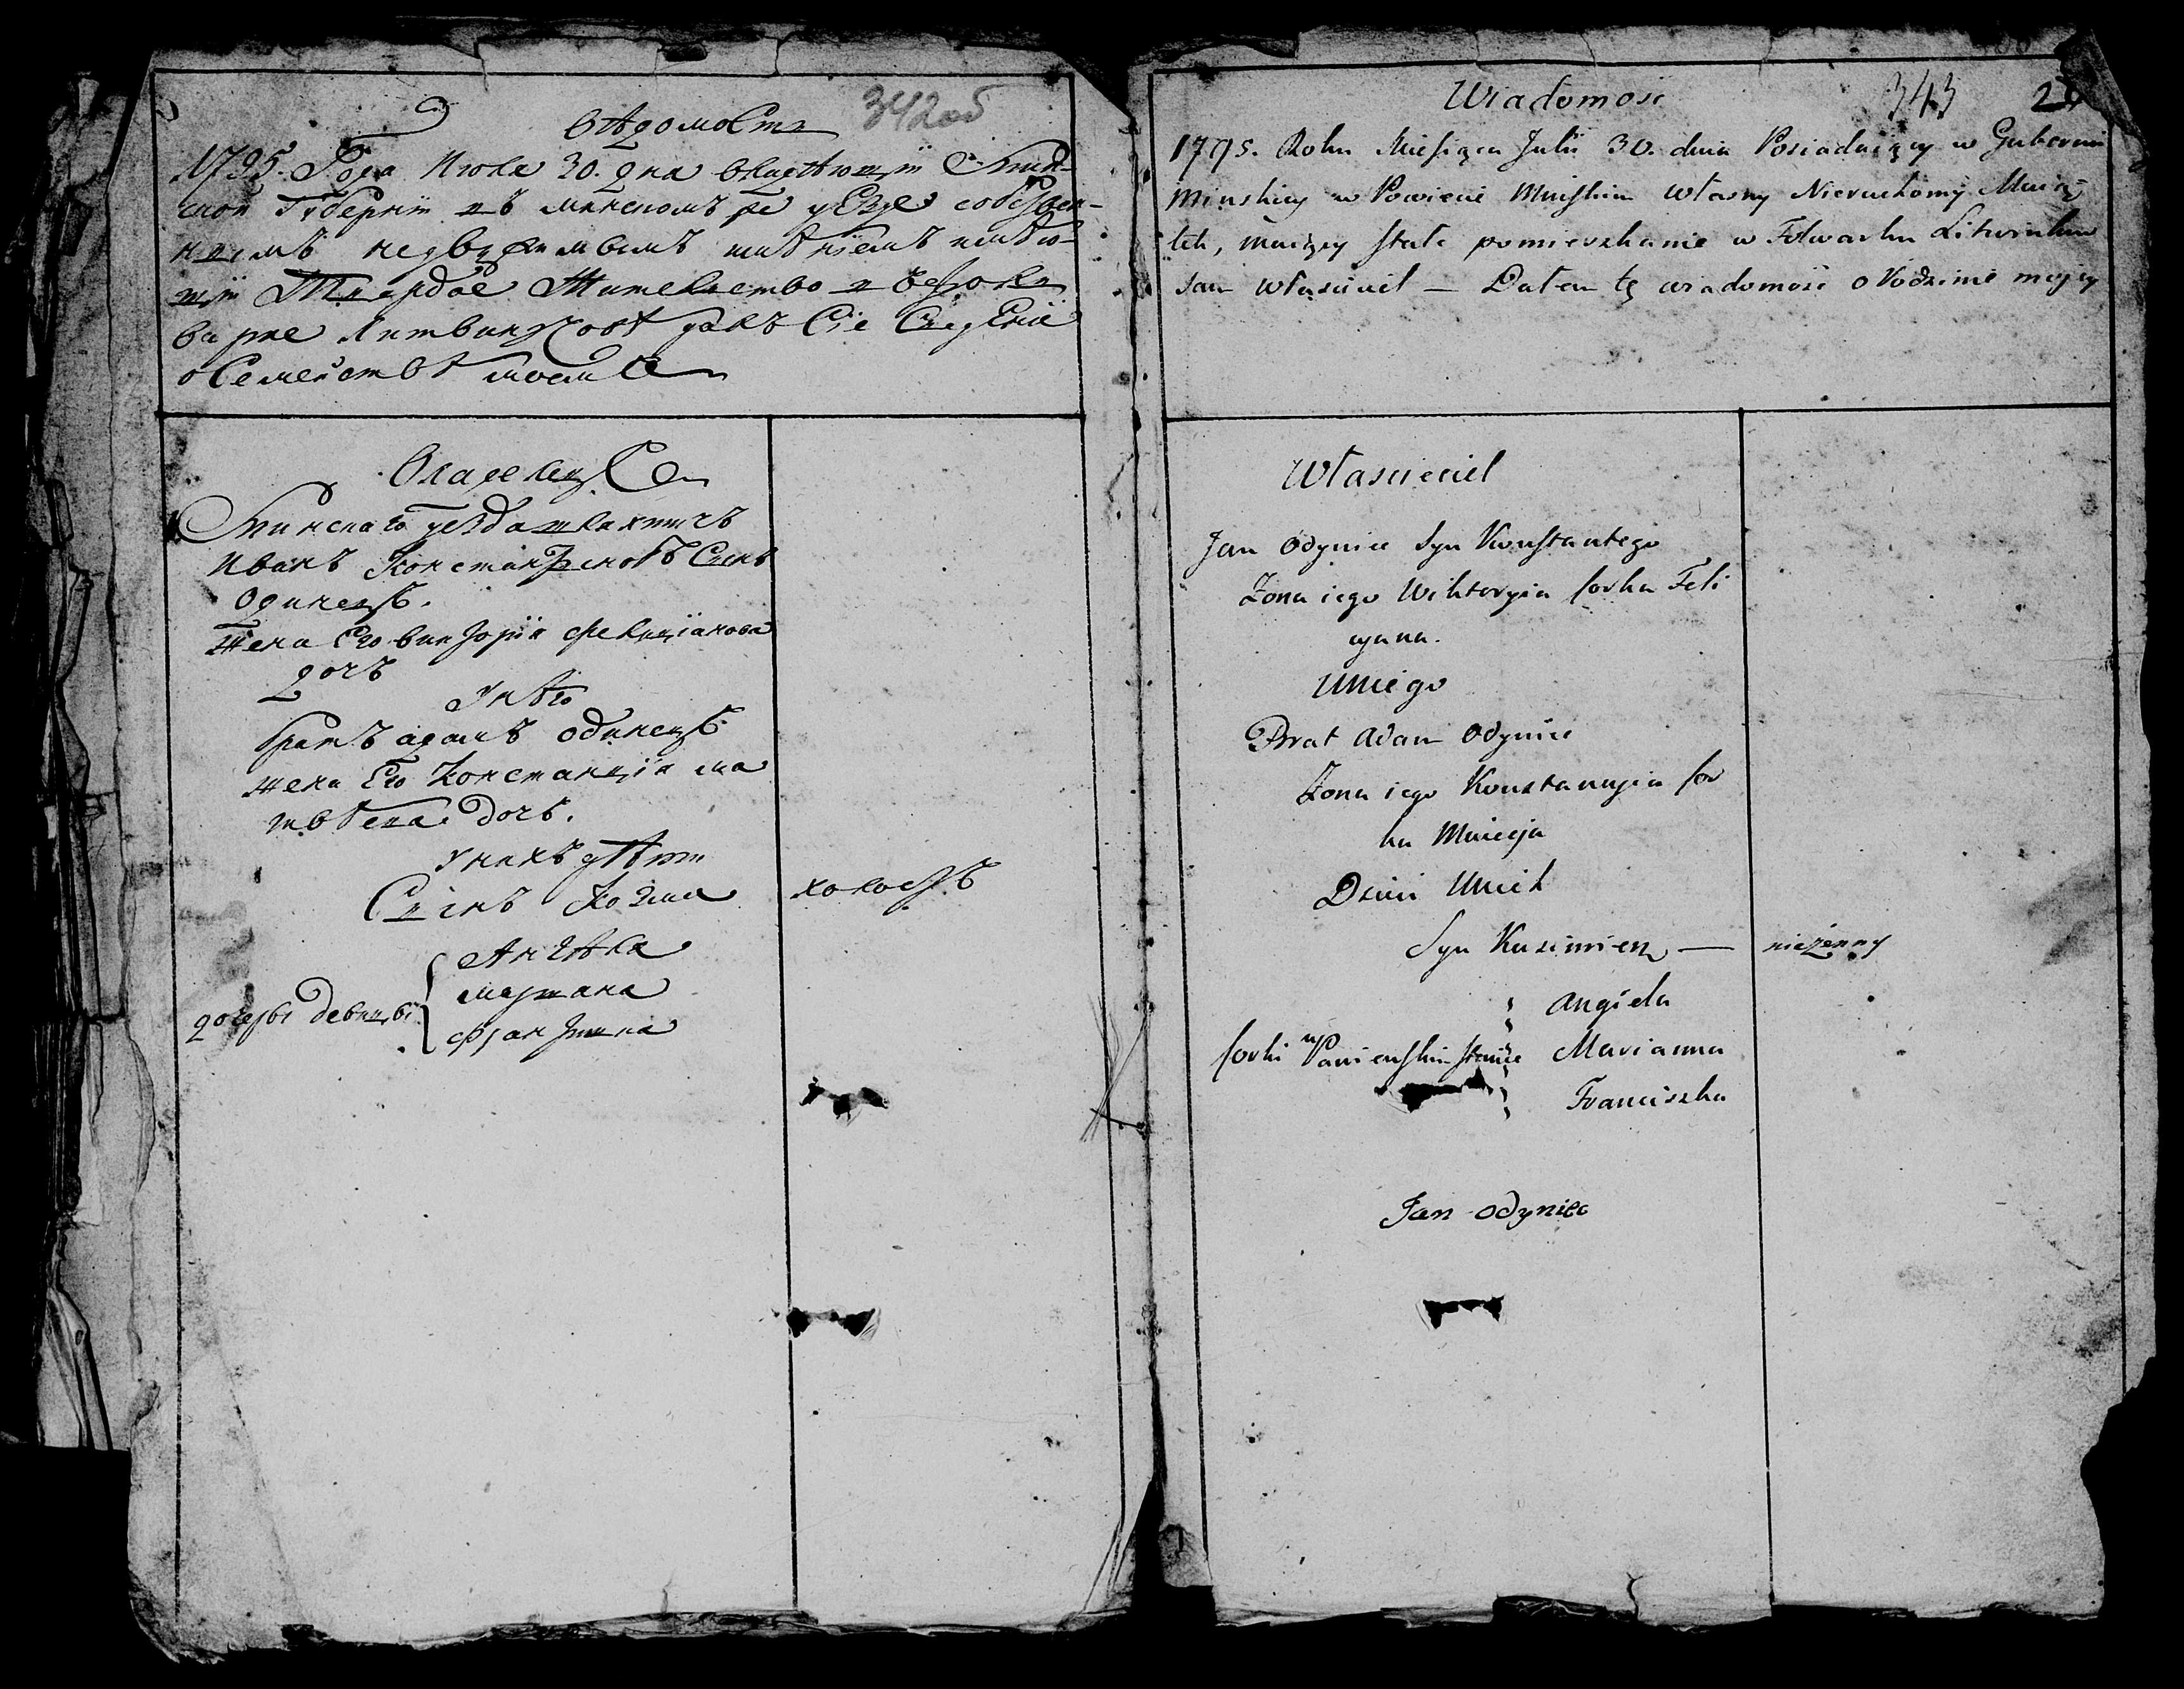 342об
Вѣдомость
1795. Года Июля 30. дня владѣющїй въ Мин-
ской Губернїи въ минскомъ же уезде собствен-
нымъ недвижимымъ имѣнїемъ имѣю-
щїй Твердое Жителство въ фоль
варке Литвинкове далъ Сїе Сведенїе
о Семействѣ моемъ
Владелецъ
Минскаго уезда шляхтичъ
Иванъ Константиновъ Сынъ
Одинецъ.
Жена Его викторїя фелицїанова
дочь
У него
братъ адамъ одинецъ
жена Его Констанцїя ма
твѣева дочь.
У нихъ дѣти
Сынъ холостъ
дочеры девицы
Анѣла
марыана
францишка
343
Wiadomosc
1795. Roku Miesiąca Julii 30. dnia Posiadaiący w Gubernii
Minskiey w Powiecie Minskim własny Nieruchomy Maią
tek, maiący stałe pomieszkanie w Folwarku Litwinkow
sam właściciel — Dałem tę wiadomość o Rodzinie mojey
Właściciel
Jan Odyniec Syn Konstantego
Żona iego Wiktoryia corka Feli
cyana.
U niego
Brat Adam Odyniec
Żona iego Konstancyia cor
ka Macieja
Dzieci U nich
Syn Kazimierz — nieżenny
Angiela
corki w Panienskim stanie Marianna
Franciszka
Jan Odyniec